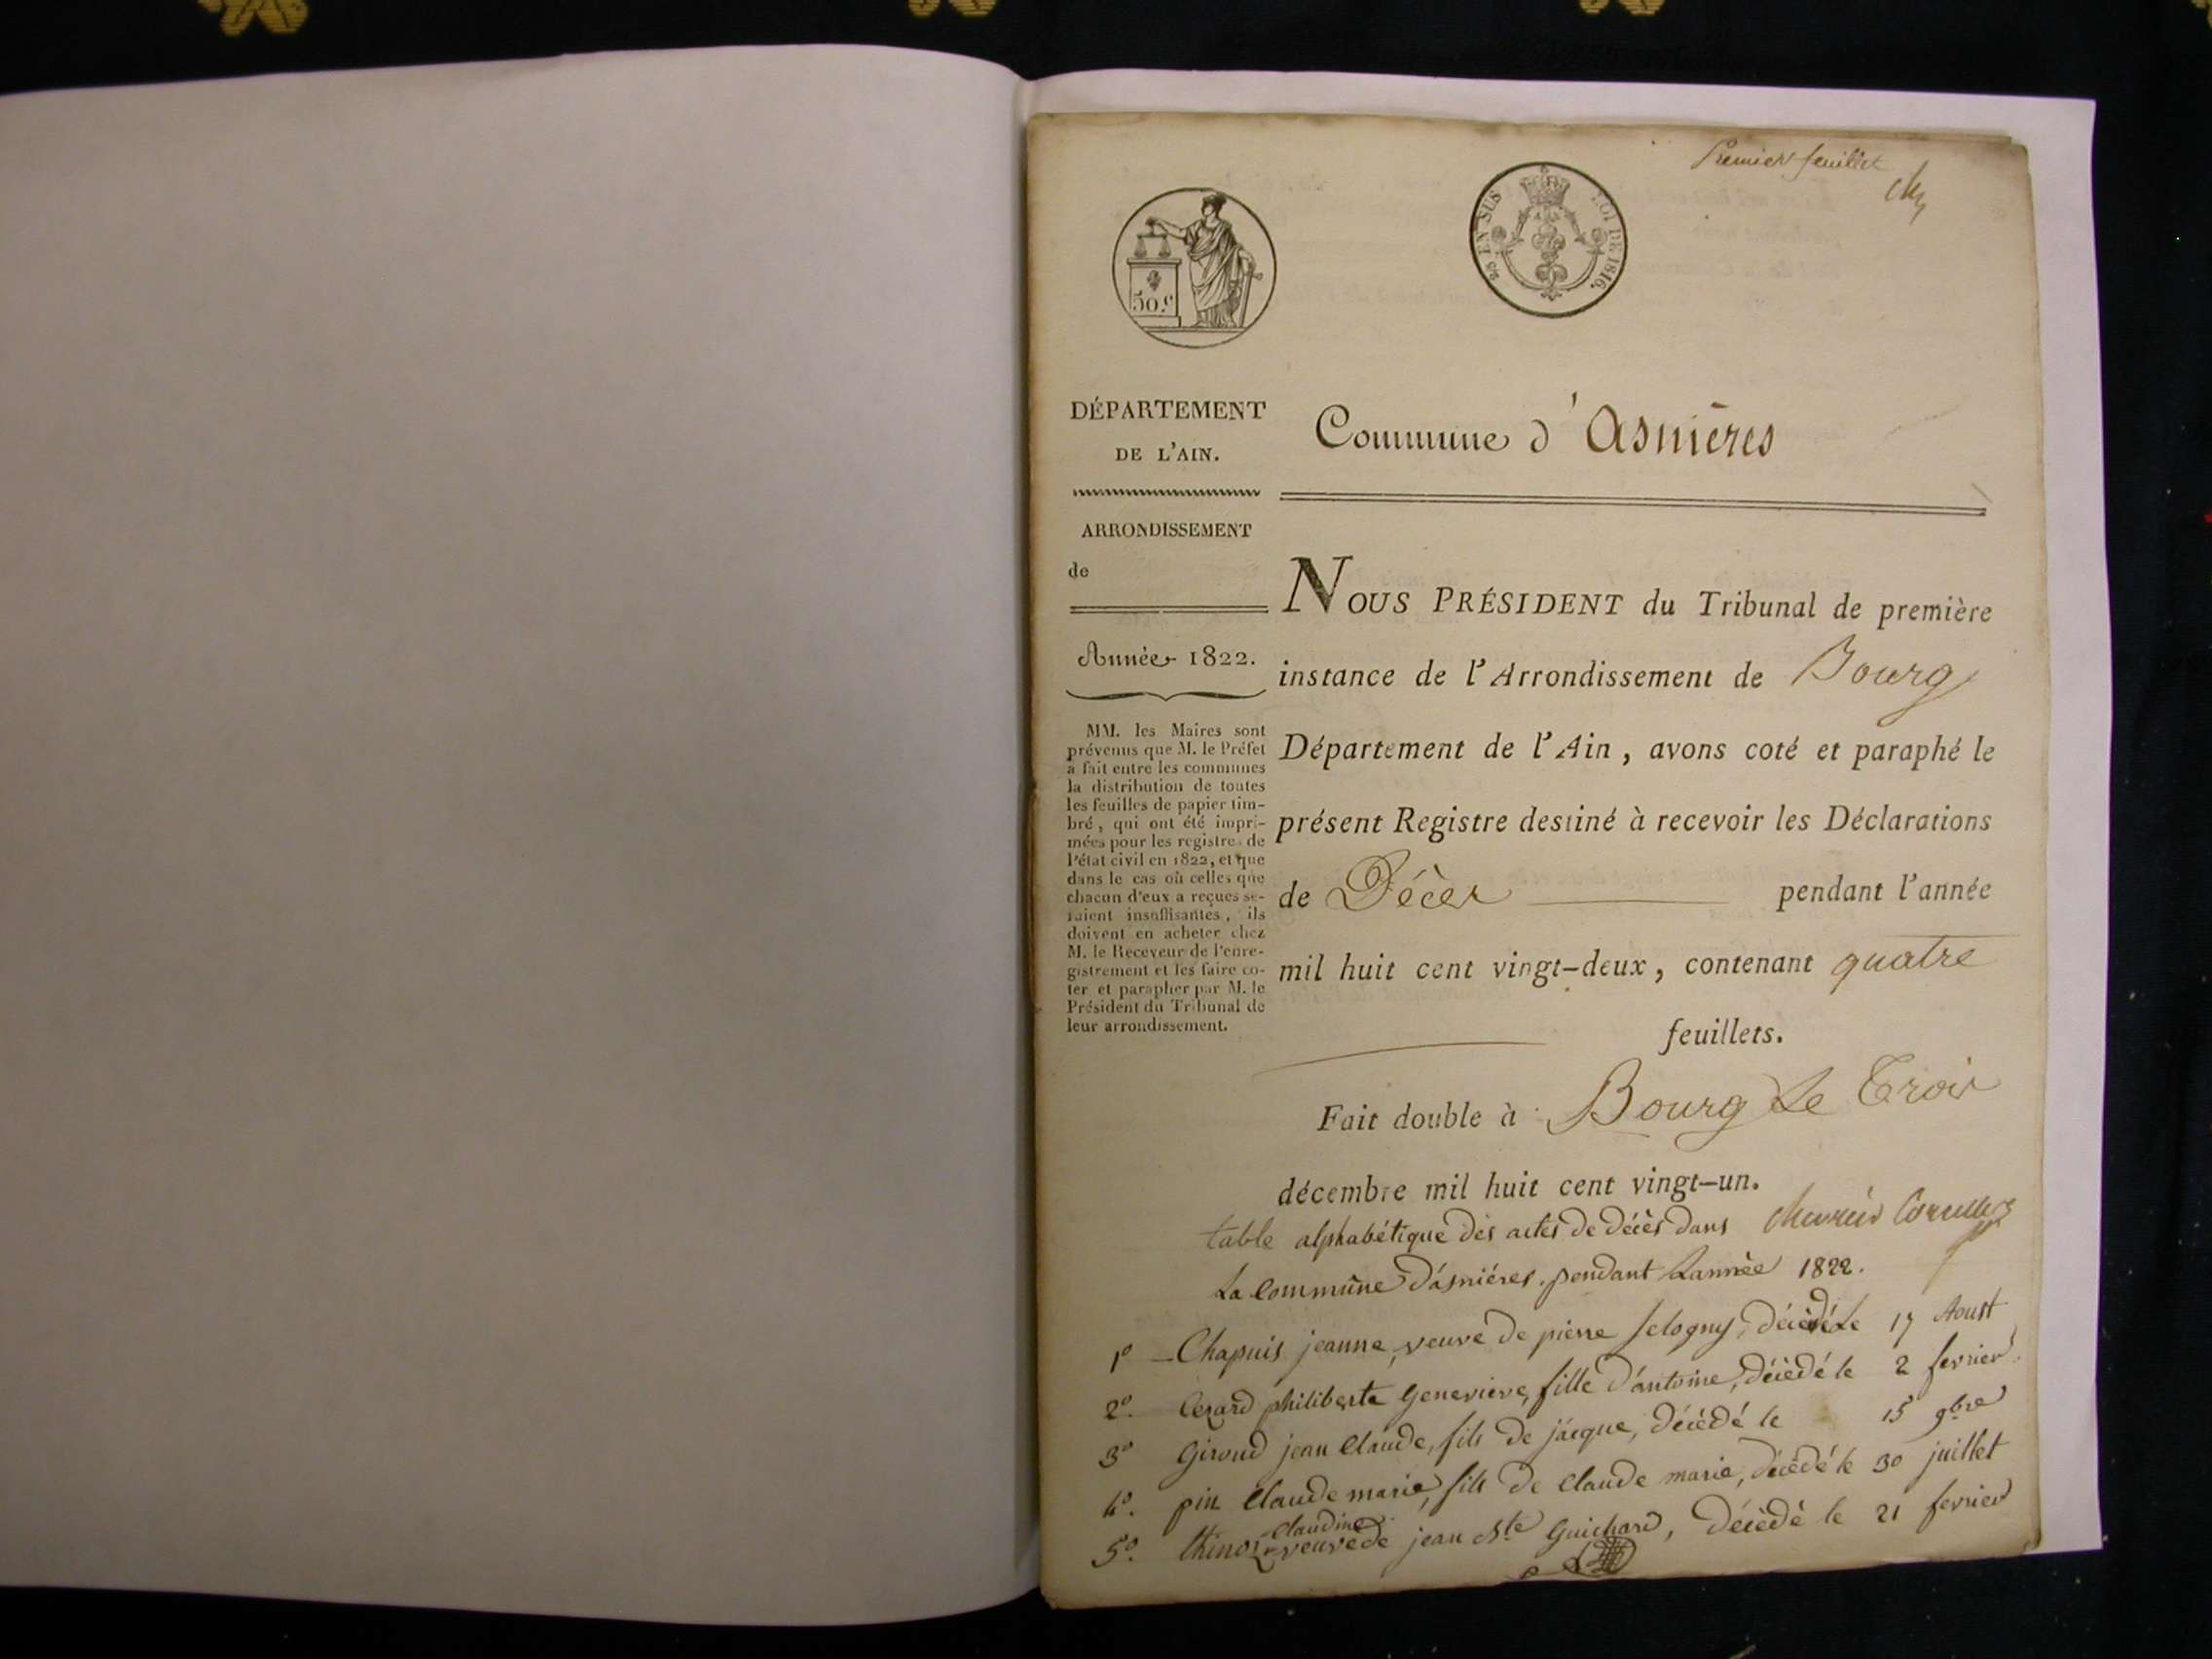 Premier feuillet
50.c
EN SUS
LOI DE 1816.
DÉPARTEMENT
DE L'AIN.
Commune d'Asnières
ARRONDISSEMENT
de
Année 1822.
MM. les Maires sont
prévenus que M. le Préfet
a fait entre les communes
la distribution de toutes
les feuilles de papier tim-
bré, qui ont été impri-
mées pour les registres de
l'état civil en 1822, et que
dans le cas où celles que
chacun d'eux a reçues se-
raient insuffisantes, ils
doivent en acheter chez
M. le Receveur de l'enre-
gistrement et les faire co-
ter et parapher par M. le
Président du Tribunal de
leur arrondissement.
NOUS PRÉSIDENT du Tribunal de première
instance de l'Arrondissement de Bourg
Département de l'Ain, avons coté et paraphé le
présent Registre destiné à recevoir les Déclarations
de Décès pendant l'année
mil huit cent vingt-deux, contenant quatre
feuillets.
Fait double à Bourg le trois
décembre mil huit cent vingt-un.
table alphabétique des actes de décès dans
La Commune d'asniéres. pendant Lannèe 1822.
1º Chapuis jeanne, veuve de pierre selogny, décédé Le 17 Aoust
2º. philiberte Genevieve, fille d'antoine, décédé le 2 fevrier.
3º Giroud jean Claude, fils de jacque, décédé le 15 9bre
4º. pin Claude marie, fils de Claude marie, décédé le 30 juillet
5º. claudine veuve de jean Bte Guichard, décédé le 21 fevrier